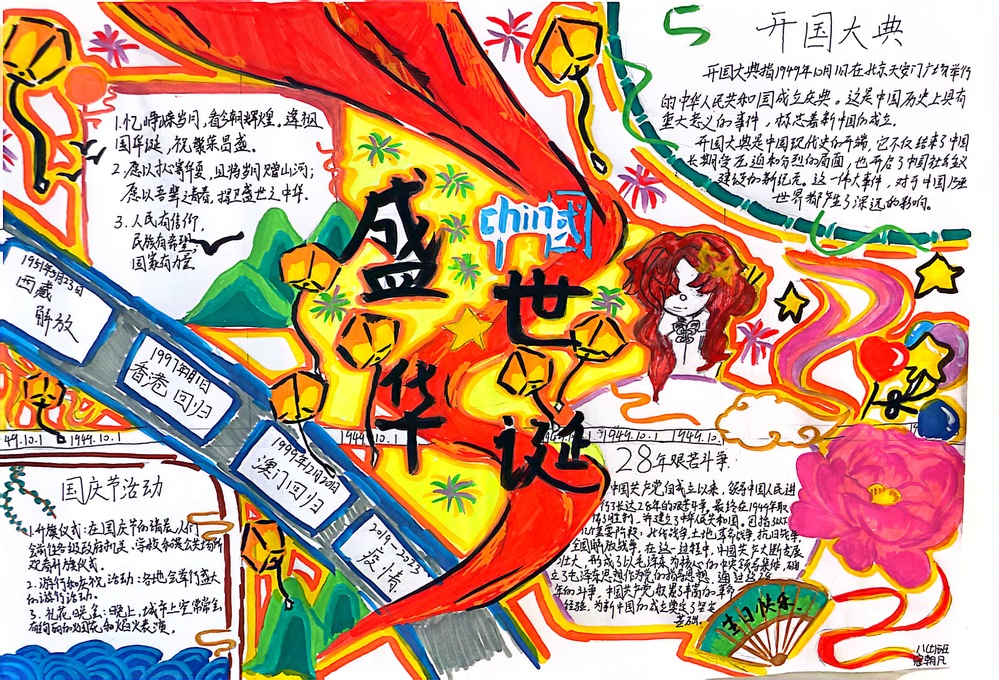 1.忆峥嵘岁月,看今朝辉煌。逢祖
国华诞,祝繁荣昌盛。
2.愿以寸心寄华夏,且将岁月赠山河;
愿以吾辈之青春,捍卫盛世之中华.
3.人民有信仰,
民族有希望
国家有力量
开国大典
开国大典指1949年10月1日在北京天安门广场举行
的中华人民共和国成立庆典。这是中国历史上具有
重大意义的事件,标志着新中国的成立。
开国大典是中国现代史的开端,它不仅结束了中国
长期受压迫和分裂的局面,也开启了中国社会主义
建设的新纪元。这一伟大事件,对于中国乃至
世界都产生了深远的影响。
盛世华诞
china
国
1951年5月23日
西藏
解放
1997年7月1日
香港回归
1999年12月20日
澳门回归
2019-2023
疫情
49.10.1
1949.10.1
1949.10.1
1949.10.1
国庆节活动
1.升旗仪式:在国庆节的清晨,人们
会前往各级政府机关、学校和公共场所
观看升旗仪式.
2.游行和庆祝活动:各地会举行盛大
的游行活动.
3.礼花晚会:晚上,城市上空常常会
有绚丽的烟花和焰火表演。
28年艰苦斗争.
中国共产党自成立以来,领导中国人民进
行了长达28年的艰苦斗争,最终在1949年取
得胜利,并建立中华人民共和国。包括以下
重要阶段:北伐战争,土地革命战争,抗日战争
全国解放战争。在这一过程中,中国共产党不断发展
壮大,形成了以毛泽东为核心的中央领导集体,确
立毛泽东思想作为党的指导思想,通过这28
年的斗争,中国共产党积累了丰富的革命
经验,为新中国的成立奠定了坚实
基础.
生日快乐.